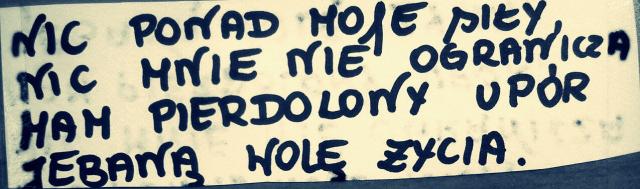 NIC PONAD MOJE SIŁY,
NIC MNIE NIE OGRANICZA
MAM PIERDOLONY UPÓR
JEBANĄ WOLĘ ŻYCIA.